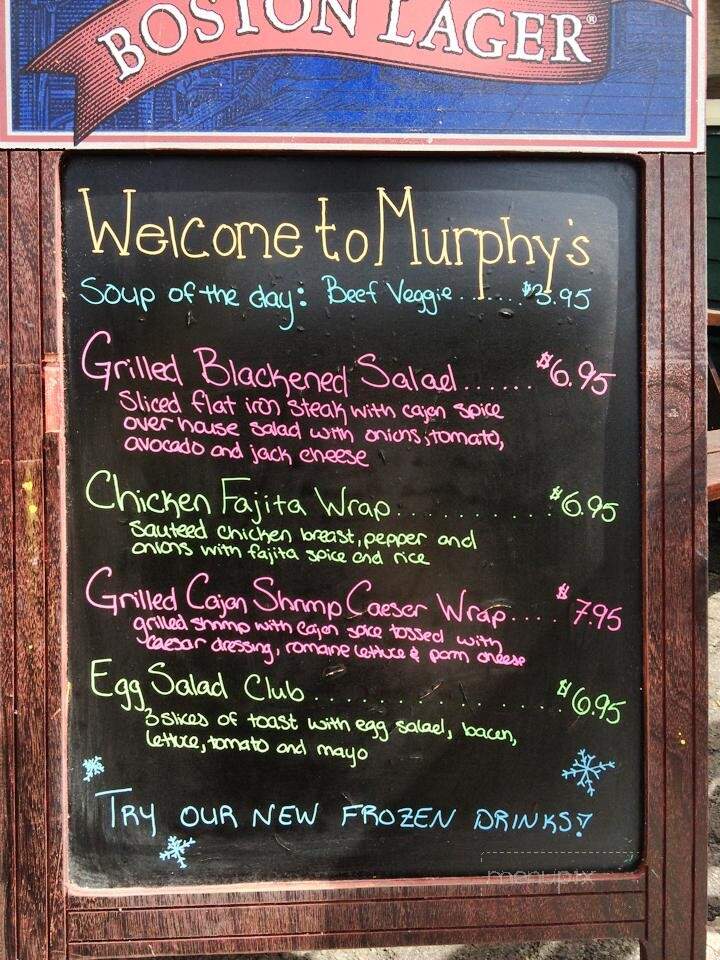 BOSTON LAGER®
Welcome to Murphy's
Soup of the day: Beef Veggie.......$3.95
Grilled Blackened Salad......$6.95
Sliced flat iron steak with cajen spice
over house salad with onions, tomato,
avocado and jack cheese
Chicken Fajita Wrap............$6.95
Sauteed chicken breast, pepper and
onions with fajita spice and rice
Grilled Cajen Shrimp Caeser Wrap....$7.95
grilled shrimp with cajen spice tossed with
caesar dressing, romaine lettuce & parm cheese
Egg Salad Club..................$6.95
3 slices of toast with egg salad, bacen,
lettuce, tomato and mayo
TRY OUR NEW FROZEN DRINKS!
menupix